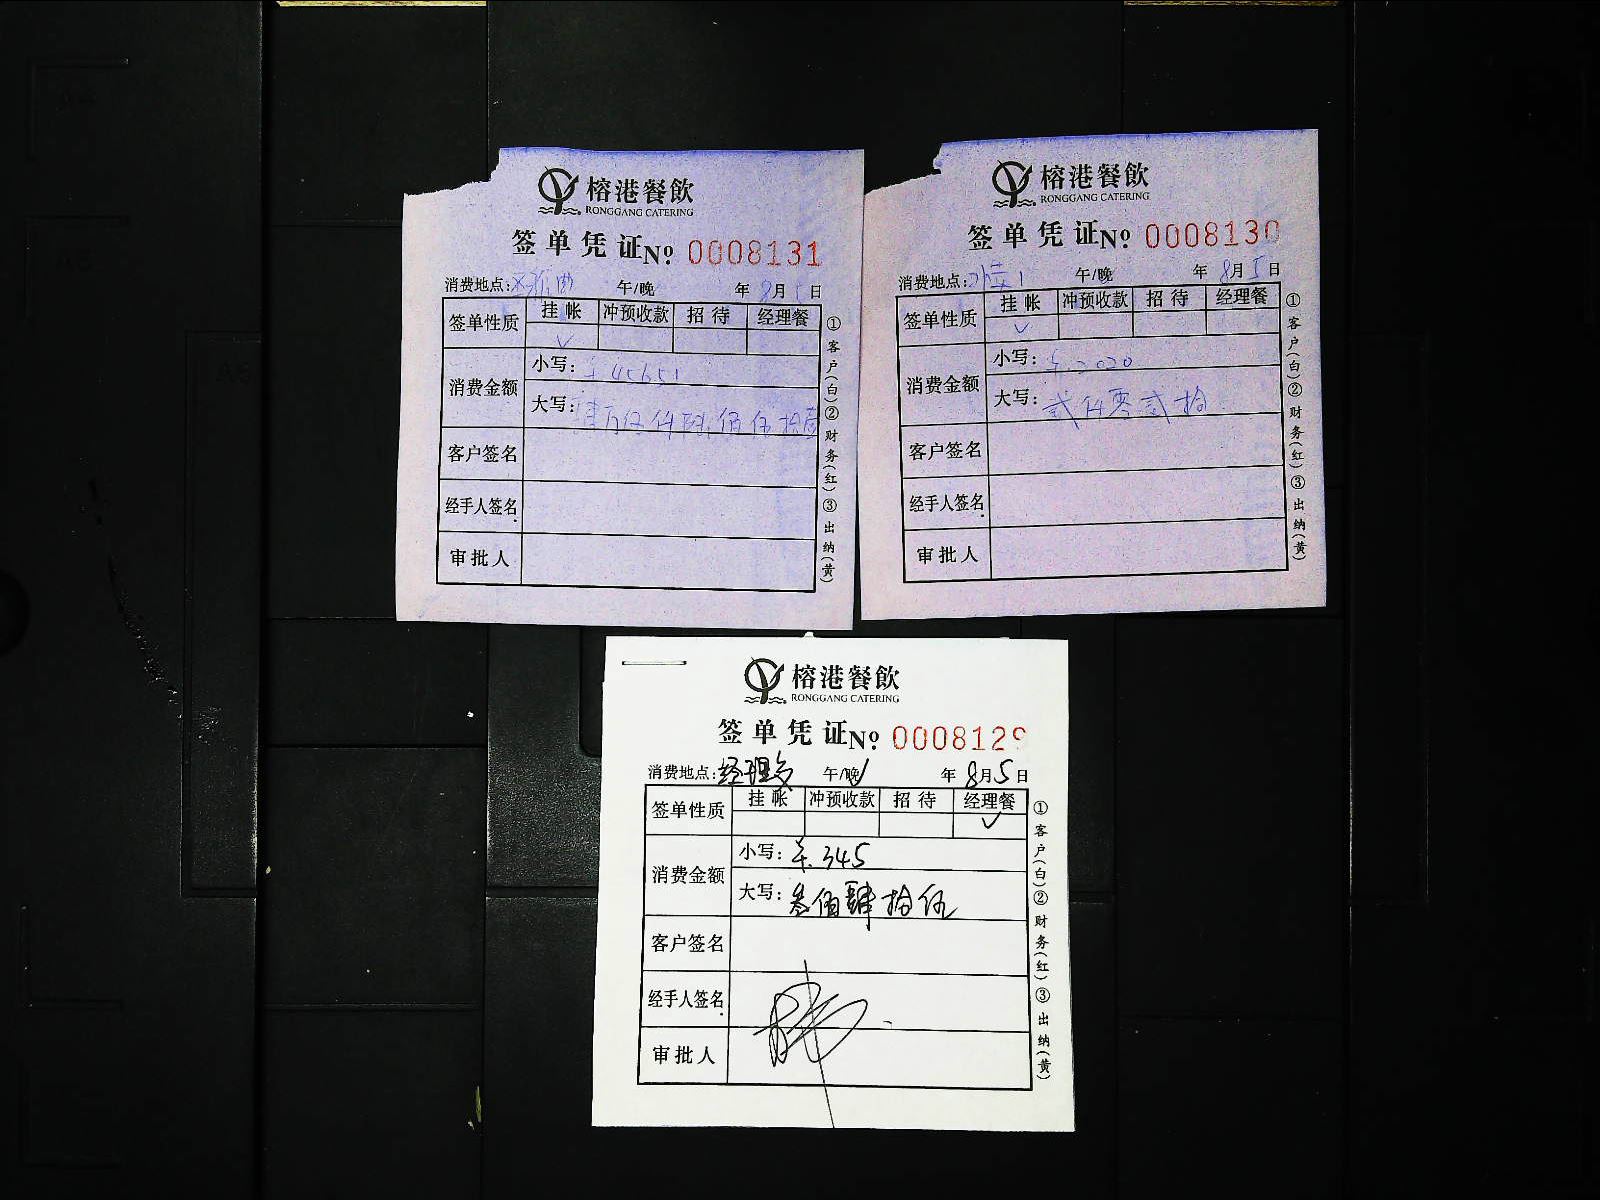 榕港餐飲
RONGGANG CATERING
签单凭证№ 0008131
消费地点: 午/晚 年 8月5日
签单性质 挂帐 冲预收款 招待 经理餐
✓
消费金额 小写: ¥45651
大写: 肆万伍仟陆佰伍拾壹
客户签名
经手人签名
审批人
①客户(白)②财务(红)③出纳(黄)
榕港餐飲
RONGGANG CATERING
签单凭证№ 0008130
消费地点: 午/晚 年 8月5日
签单性质 挂帐 冲预收款 招待 经理餐
✓
消费金额 小写: ¥.2020
大写: 贰仟零贰拾
客户签名
经手人签名
审批人
①客户(白)②财务(红)③出纳(黄)
榕港餐飲
RONGGANG CATERING
签单凭证№ 0008129
消费地点:经理餐 午/晚✓ 年 8月5日
签单性质 挂帐 冲预收款 招待 经理餐
✓
消费金额 小写: ¥.345
大写: 叁佰肆拾伍
客户签名
经手人签名
审批人
①客户(白)②财务(红)③出纳(黄)